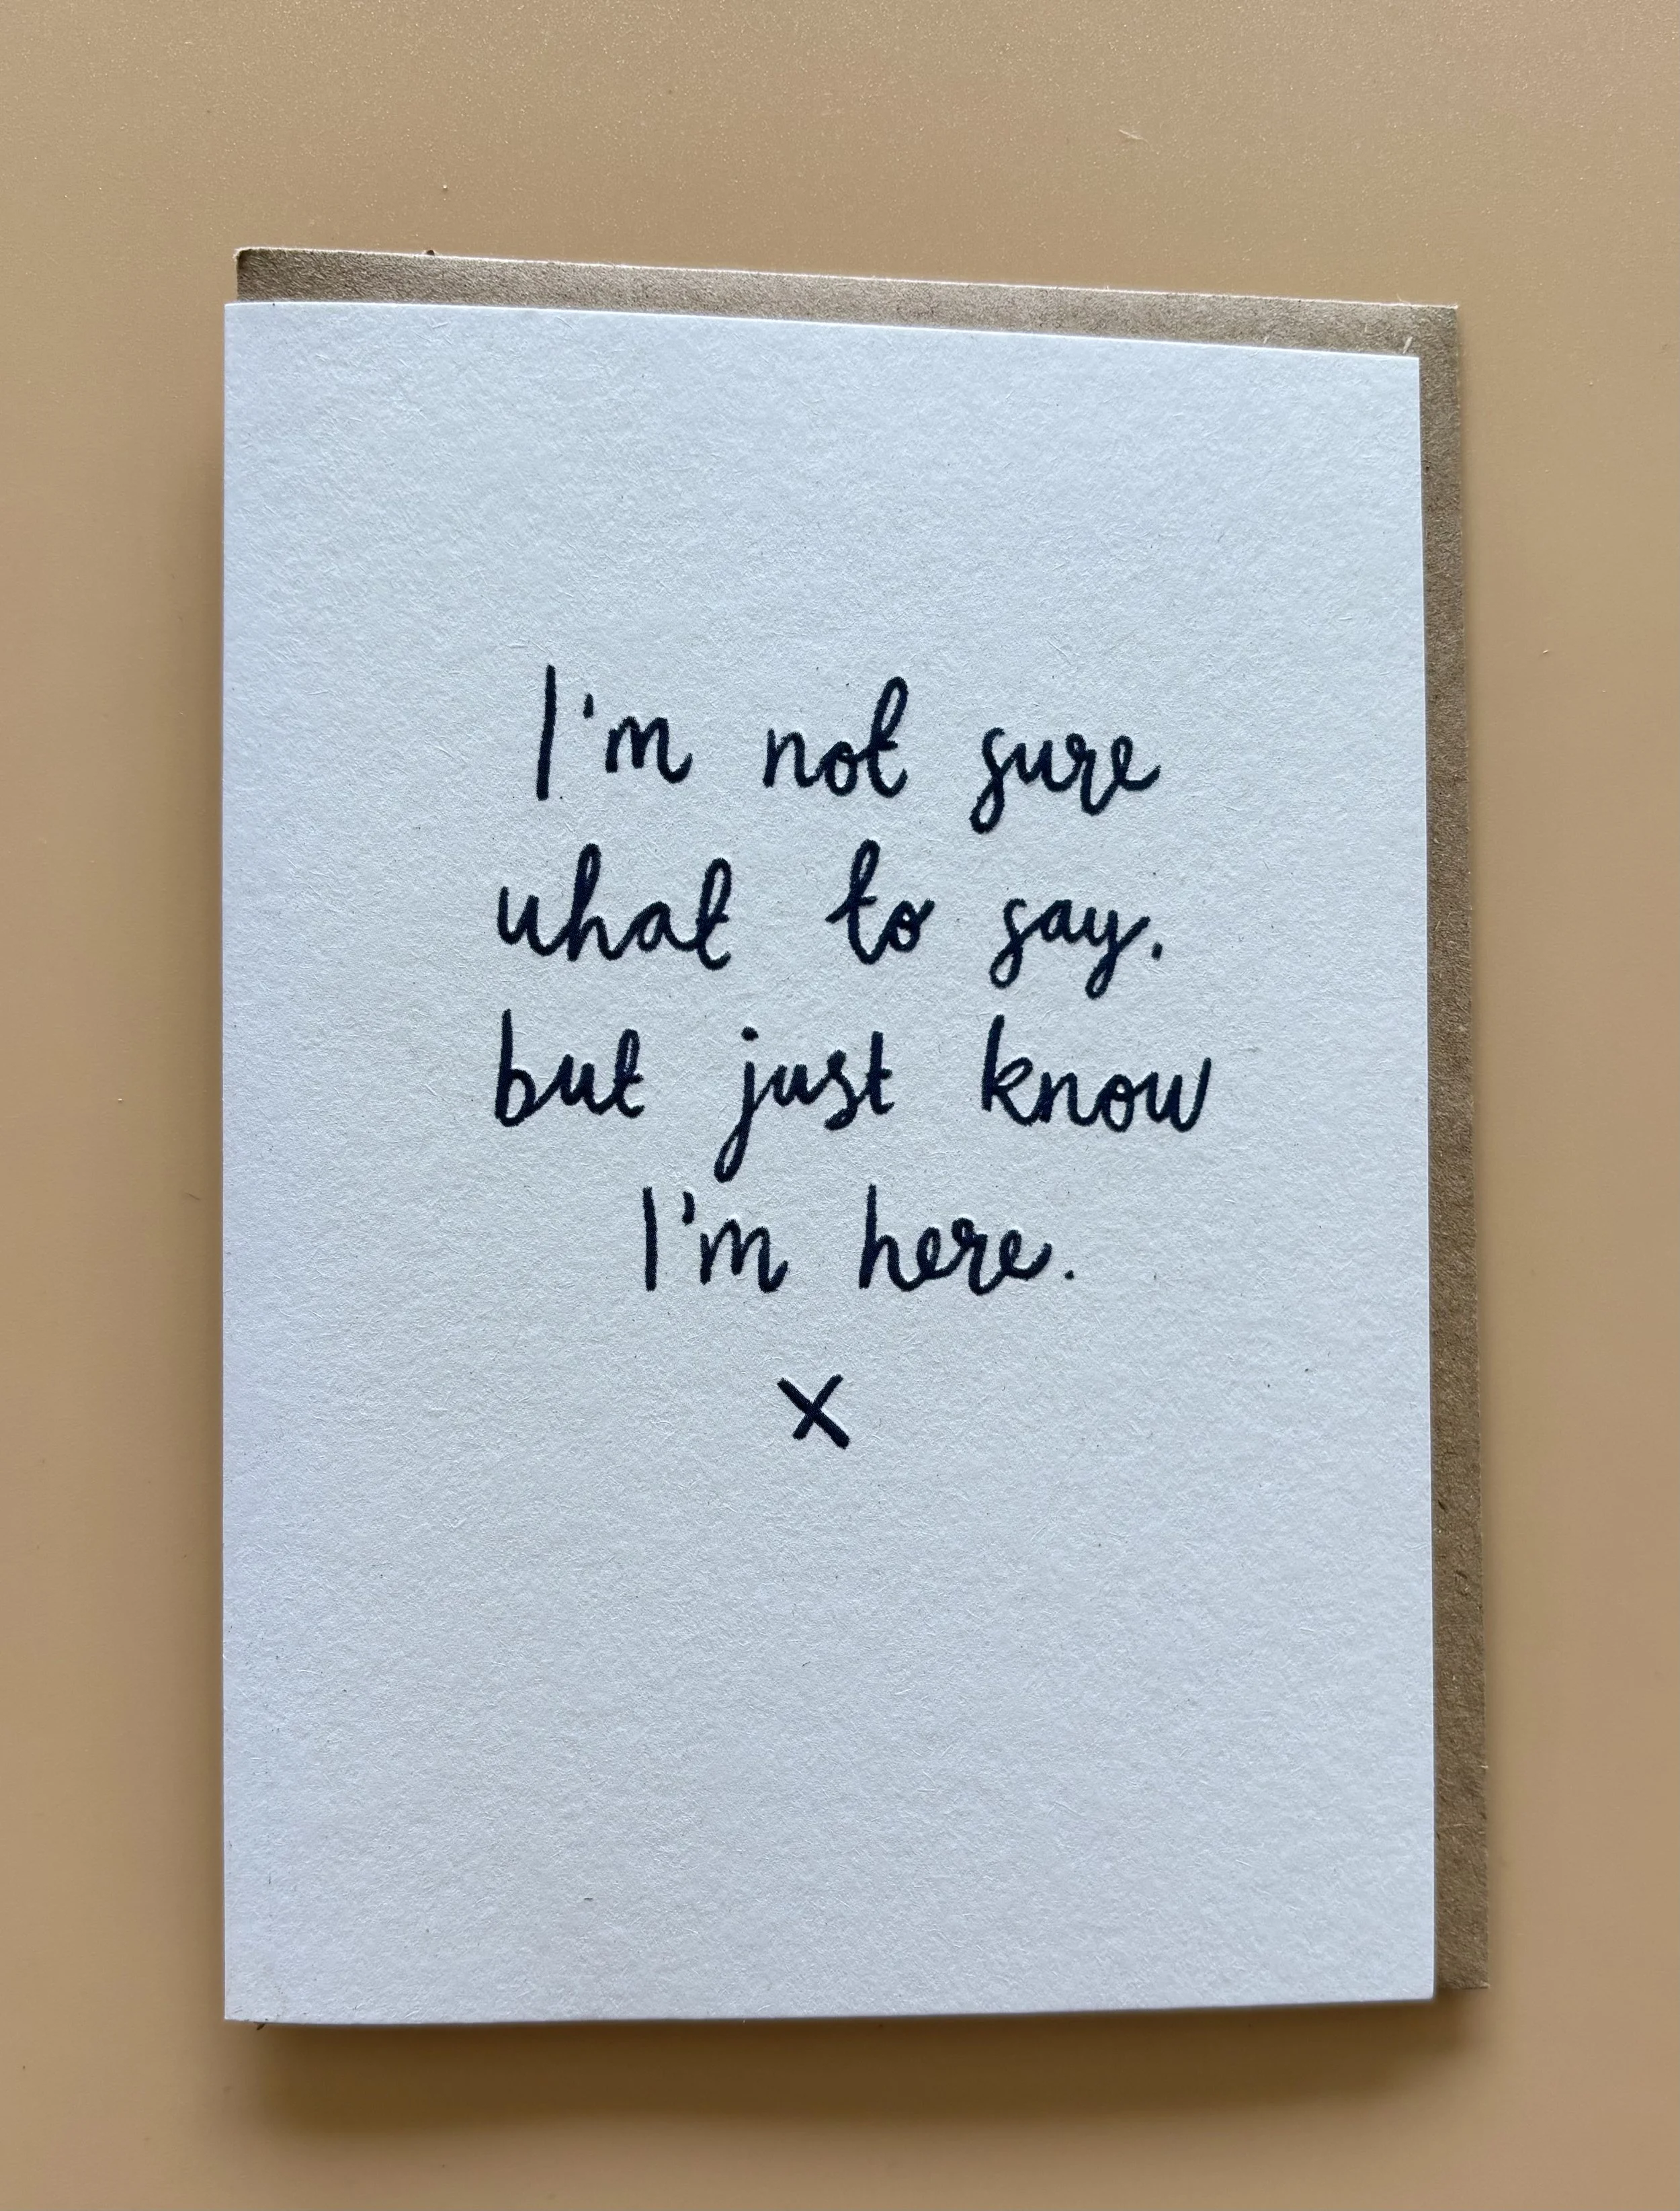 I'm not sure
what to say.
but just know
I'm here.
x